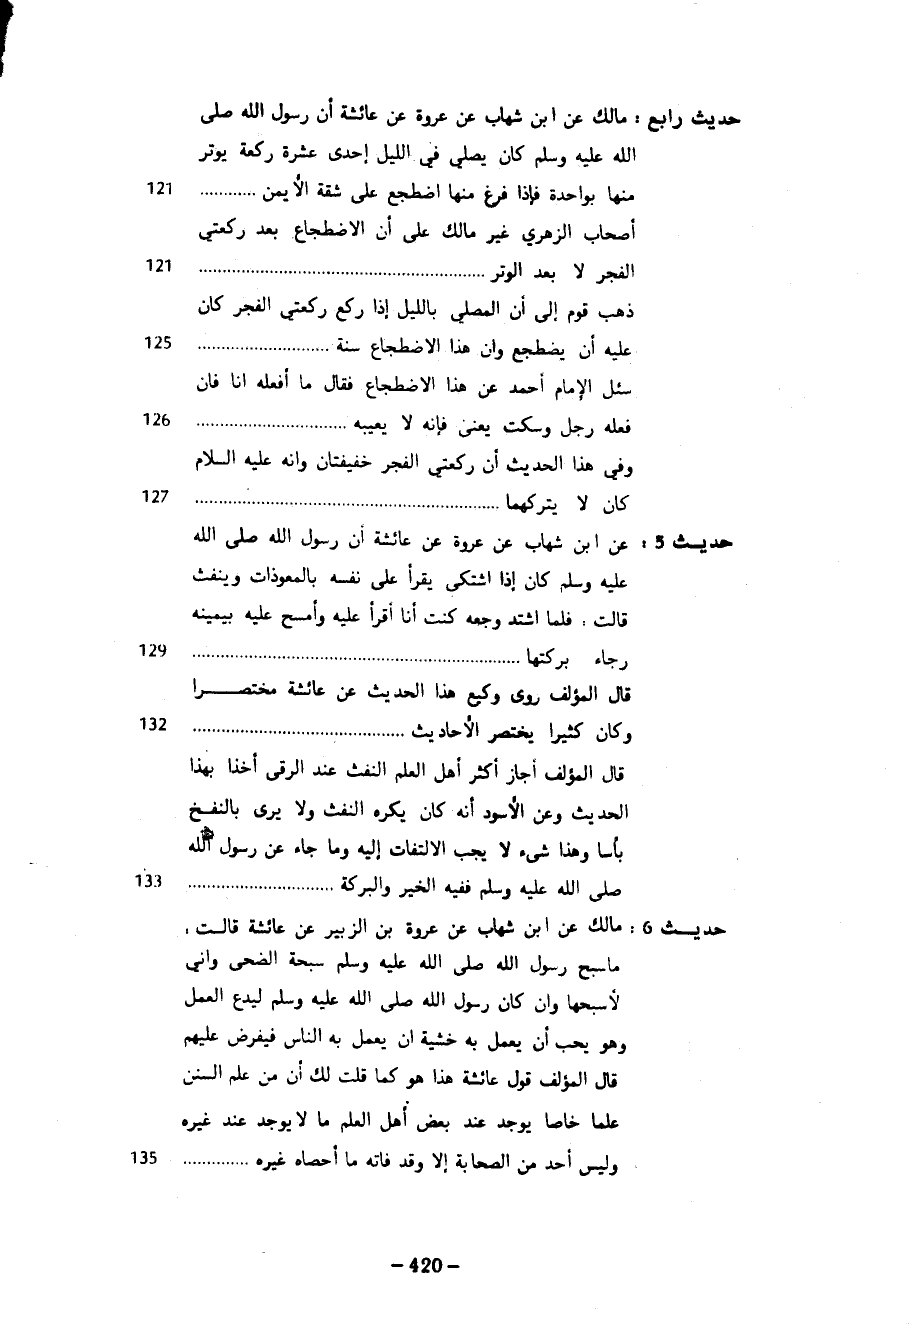 حديث رابع : مالك عن ابن شهاب عن عروة عن عائشة أن رسول الله صلى
الله عليه وسلم كان يصلي في الليل إحدى عشرة ركعة يوتر
منها بواحدة فإذا فرغ منها اضطجع على شقة الأيمن ............ 121
أصحاب الزهري غير مالك على أن الاضطجاع بعد ركعتي
الفجر لا بعد الوتر ............ 121
ذهب قوم إلى أن المصلي بالليل إذا ركع ركعتي الفجر كان
عليه أن يضطجع وان هذا الاضطجاع سنة ............ 125
سئل الإمام أحمد عن هذا الاضطجاع فقال ما أفعله انا فان
فعله رجل وسكت يعنى فإنه لا يعيبه ............ 126
وفي هذا الحديث أن ركعتي الفجر خفيفتان وانه عليه السلام
كان لا يتركهما ............ 127
حديث 5 : عن ابن شهاب عن عروة عن عائشة أن رسول الله صلى الله
عليه وسلم كان إذا اشتكى يقرأ على نفسه بالمعوذات وينفث
قالت : فلما اشتد وجعه كنت أنا أقرأ عليه وأمسح عليه بيمينه
رجاء بركتها ............ 129
قال المؤلف روى وكيع هذا الحديث عن عائشة مختصرا
وكان كثيرا يختصر الأحاديث ............ 132
قال المؤلف أجاز أكثر أهل العلم النفث عند الرقى أخذا بهذا
الحديث وعن الأسود أنه كان يكره النفث ولا يرى بالنفخ
بأسا وهذا شيء لا يجب الالتفات إليه وما جاء عن رسول الله
صلى الله عليه وسلم ففيه الخير والبركة ............ 133
حديث 6 : مالك عن ابن شهاب عن عروة بن الزبير عن عائشة قالت ،
ماسبح رسول الله صلى الله عليه وسلم سبحة الضحى واني
لأسبحها وان كان رسول الله صلى الله عليه وسلم ليدع العمل
وهو يحب أن يعمل به خشية ان يعمل به الناس فيفرض عليهم
قال المؤلف قول عائشة هذا هو كما قلت لك أن من علم السنن
علما خاصا يوجد عند بعض أهل العلم ما لا يوجد عند غيره
وليس أحد من الصحابة إلا وقد فاته ما أحصاه غيره ............ 135
– 420 –